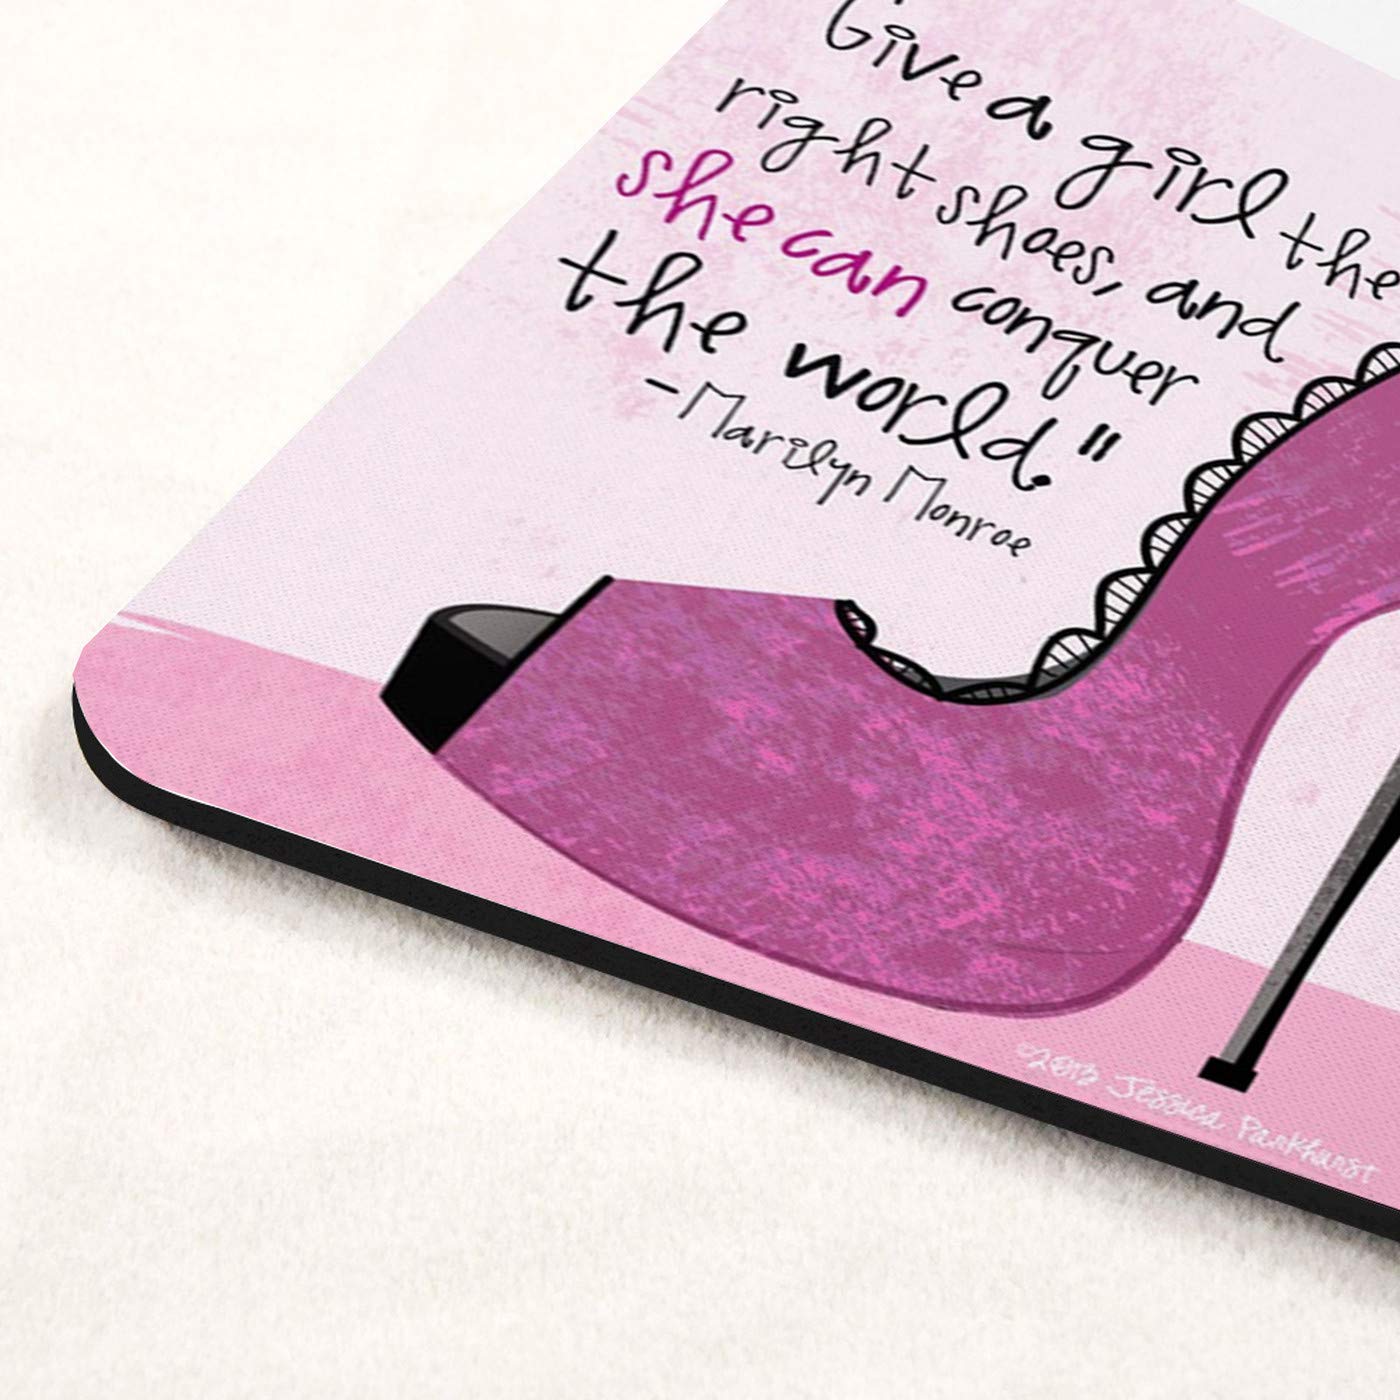 Give a girl the
right shoes, and
she can conquer
the world."
-Marilyn Monroe
©2013 Jessica Parkhurst